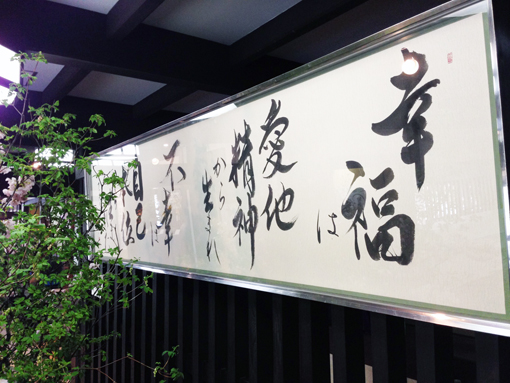 幸福は
愛他
精神
から生まれ
不幸は
自己